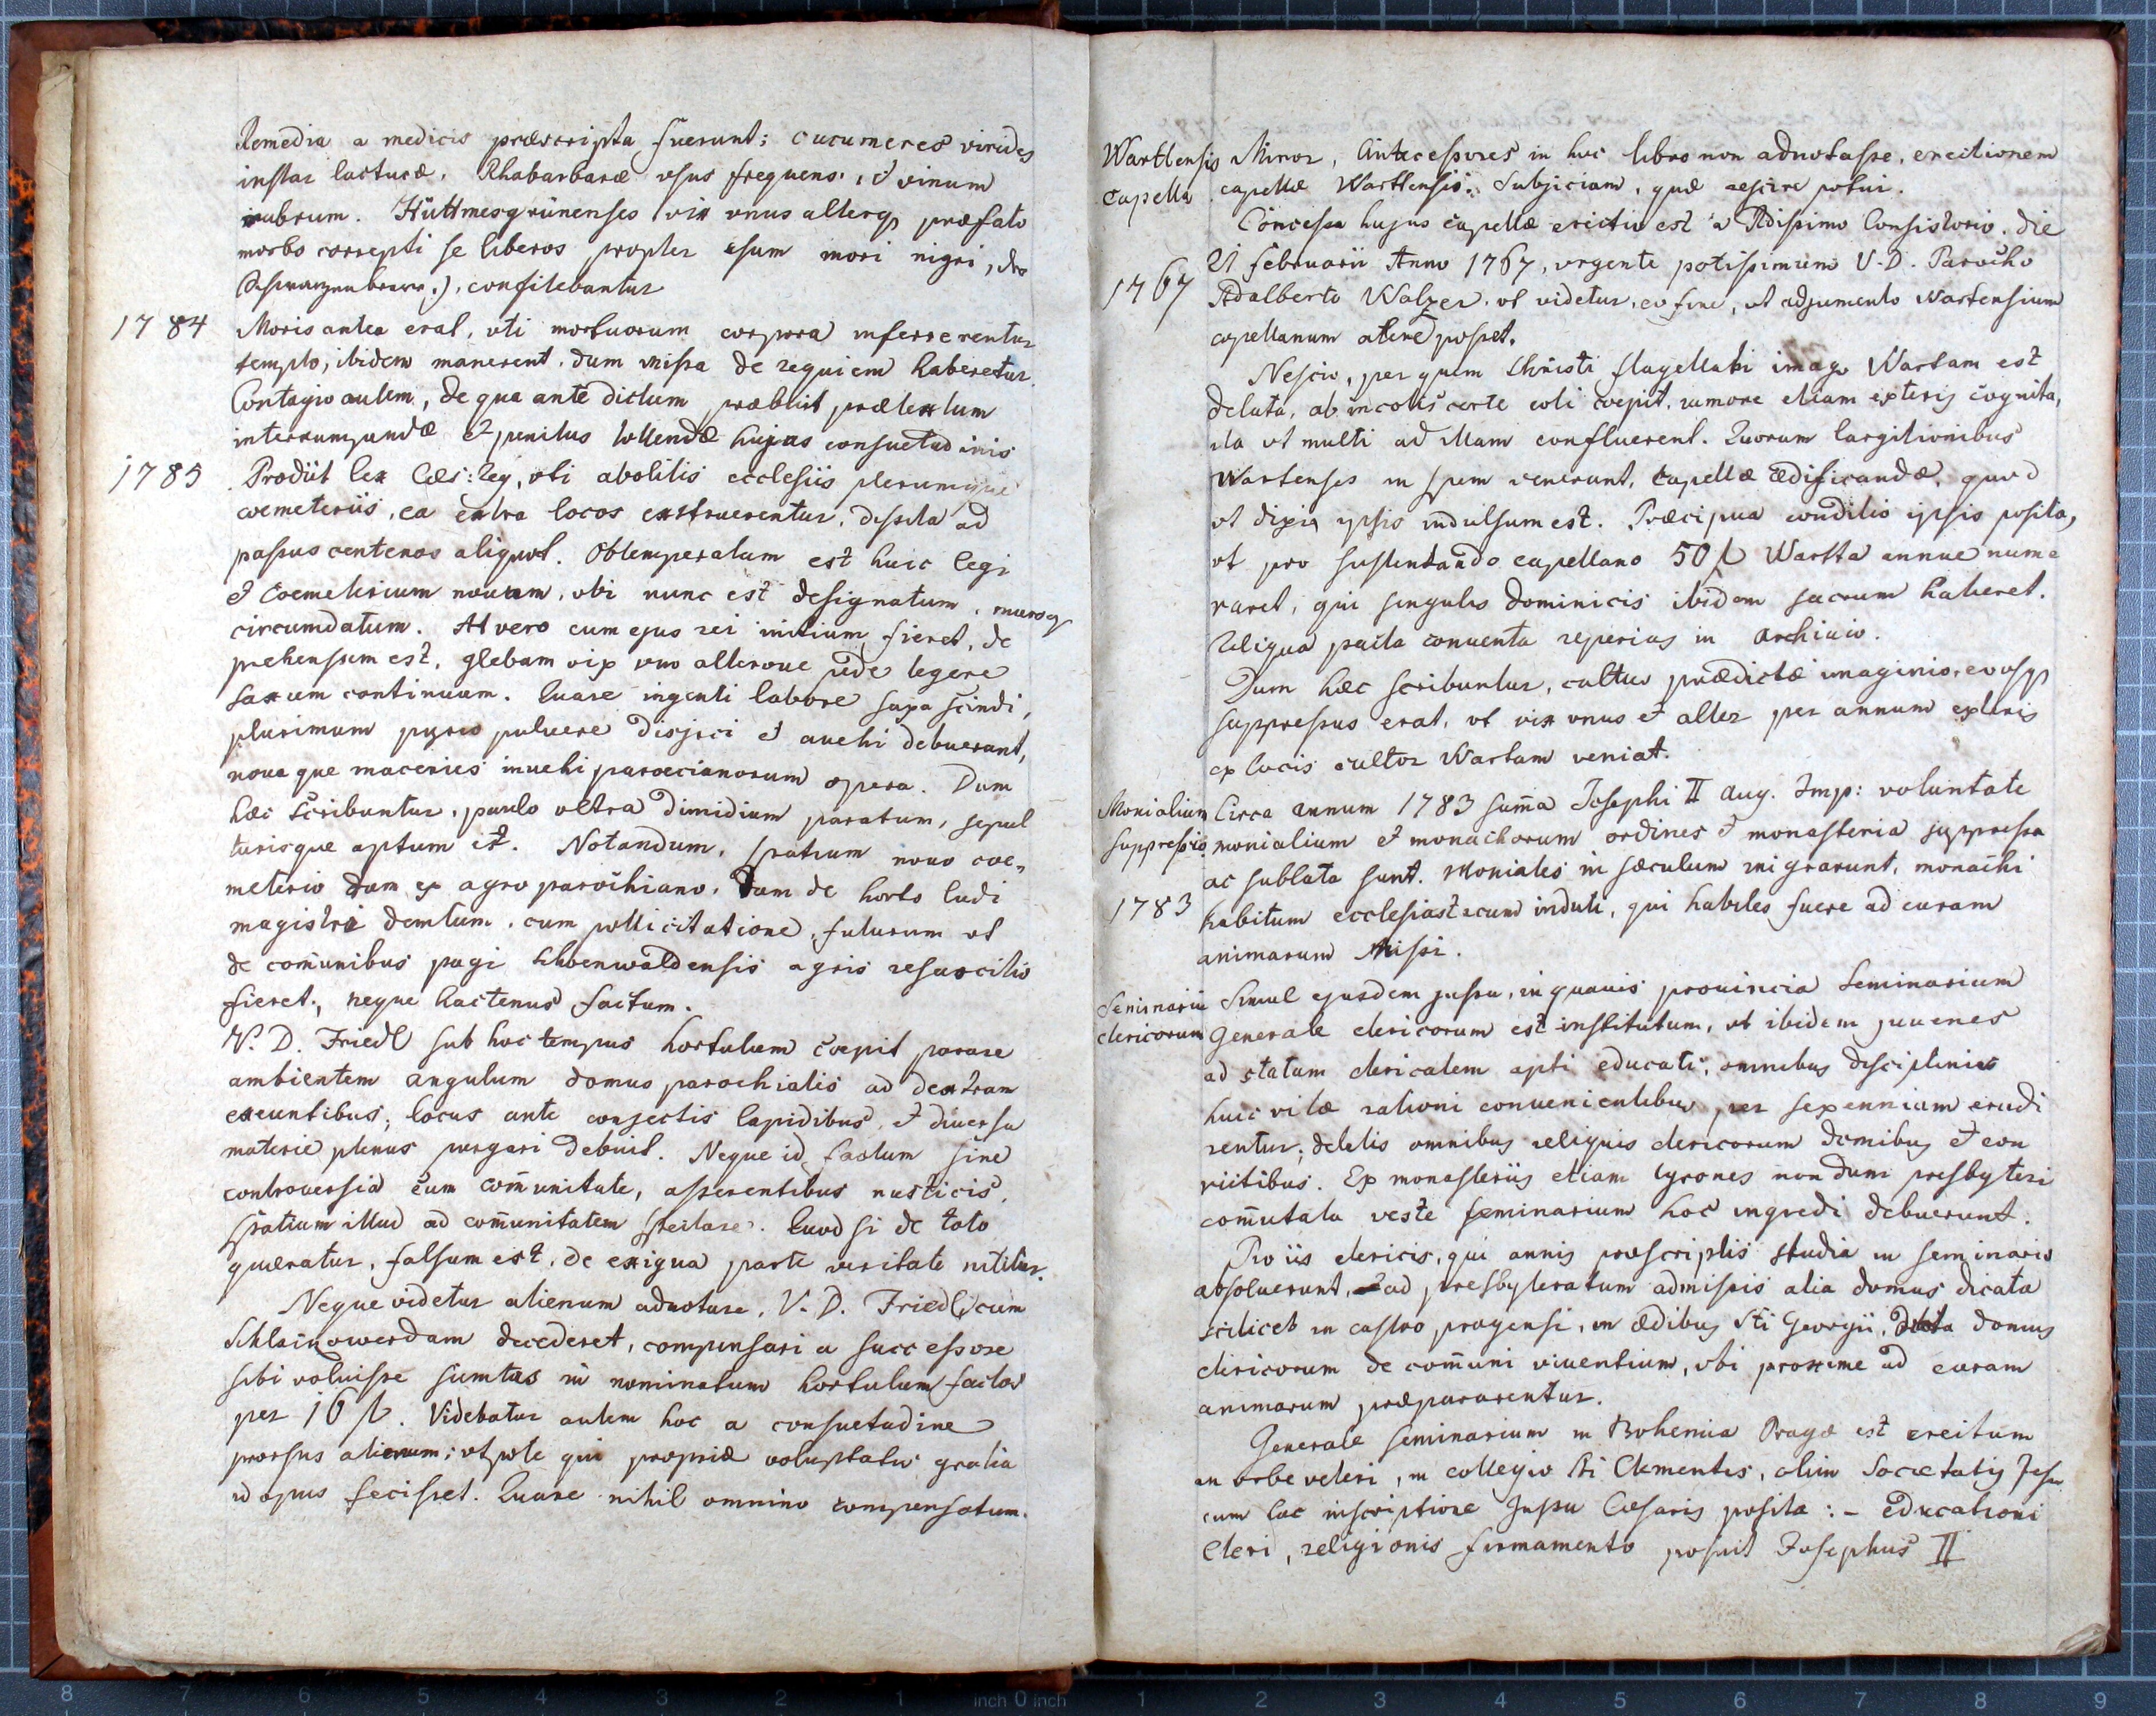 Remedia a medicis præscripta fuerunt; cucumeres virides
instar lactucæ. Rhabarbaræ usus frequens, et vinum
rubrum. Hüttmesgrünenses vix vnus alterqȝ præfato
morbo correpti se liberos propter esum mori nigri, der
Schwarzenbeere), confitebantur
1784 Moris antea erat, vti mortuorum corpora inferrerentur
templo, ibidem manerent, dum missa de requiem haberetur.
Contagio autem, de qua ante dictum præbuit prætextum
interrumpendæ et penitus tollendæ hujus consuetudinis
1785 Prodiit lex Cæs: Reg, vti abolitis ecclesiis plerumque
coemeteriis, ea extra locos exstruerentur, dissita ad
passus centenos aliquot. Obtemperatum est huic legi
et Coemeterium novum, vbi nunc est designatum, muroqȝ
circumdatum. At vero cum ejus rei initium fieret, de
prehensum est, glebam vix vno alterove pede tegere
saxum continuum. Quare ingenti labore saxa scindi,
plurimum pyrio pulvere disjici et avehi debuerunt,
novaque maceries invehi paroecianorum opera. Dum
hæc scribuntur, paulo vltra dimidium paratum, sepul
turisque aptum est. Notandum, spatium novo coe„
meterio tum ex agro parochiano, tum de horto ludi
magistri demtum, cum pollicitatione, futurum vt
de com̄unibus pagi Schoenwaldensis agris resarcitio
fieret; neque hactenus factum.
V. D. Friedl sub hoc tempus hortulum coepit parare
ambientem angulum domus parochialis ad dextram
exeuntibus; locus ante conjectis lapidibus, et diversa
materie plenus purgari debuit. Neque id factum sine
controversia cum com̄unitate, asserentibus rusticis,
spatium illud ad com̄unitatem spectare. Quod si de toto
quæratur, falsum est, de exigua parte veritate nititur.
Neque videtur alienum adnotare, V. D. Friedl, cum
Schlackowerdam decederet, compensari a successore
sibi voluisse sumtus in nominatum hortulum factos
per 16 fl. Videbatur autem hoc a consuetudine
prorsus alienum; vtpote qui propriæ voluptatis gratia
id opus fecisset. Quare nihil omnino compensatum.
Wartlensis Miror, Antecessores in hoc libro non adnotasse, erectionem
Capella. capellæ Wartlensis. Subjiciam, quæ rescire potui.
Concessa hujus capellæ erectio est a Rdissimo Consistorio. die
21 Februarii Anno 1767, vrgente potissimum V. D. Parocho
1767 Adalberto Walzer, vt videtur, eo fine, vt adjumento Wartensium
capellanum alere posset.
Nescio, per quem Christi flagellati imago Wartam est
delata, ab incolis certe coli coepit, rumore etiam exteris cognita,
ita vt multi ad illam confluerent. Quorum largitionibus
Wartenses in spem venerunt, Capellæ ædificandæ, quod
vt dixi, ipsis indulsum est. Præcipua conditio ipsis posita,
vt pro sustentando capellano 50 fl Wartta annue nume
raret, qui singulis dominicis ibidem sacrum haberet.
Reliqua pacta conventa reperias in Archivio.
Dum hæc scribuntur, cultus prædictæ imaginis, eousqȝ
suppressus erat, vt vix vnus et alter per annum exteris
ex locis cultor Wartam veniat.
Monialium Circa annum 1783 sum̄a Josephi II Aug. Imp: voluntate
suppressio. monialium et monachorum ordines et monasteria suppressa
ac sublata sunt. Moniales in sæculum migrarunt, monachi
1783 habitum ecclesiasticum induti, qui habiles fuere ad curam
animarum missi.
Seminariū Simul ejusdem jussu, in quavis provincia Seminarium
clericorum Generale clericorum est institutum, vt ibidem juvenes
ad statum clericalem apti educati, omnibus disciplinis
huic vitæ rationi convenientibus, per sexennium erudi
rentur; deletis omnibus reliquis clericorum domibus et con
victibus. Ex monasteriis etiam tyrones nondum presbyteri
com̄utata veste seminarium hoc ingredi debuerunt.
Pro iis clericis, qui annis præscriptis studia in seminario
absolverunt, ad presbyteratum admissis alia domus dicata
scilicet in castro pragensi, in ædibus Sti Georgii, dicta domus
clericorum de com̄uni viventium, vbi proxime ad curam
animarum præpararentur.
Generale seminarium in Bohemia Pragæ est erectum
in vrbe veteri, in collegio Sti Clementis, olim Societatis Jesu
cum hac inscriptione Jussu Cæsaris posita: - Educationi
Cleri, religionis firmamento posuit Josephus II